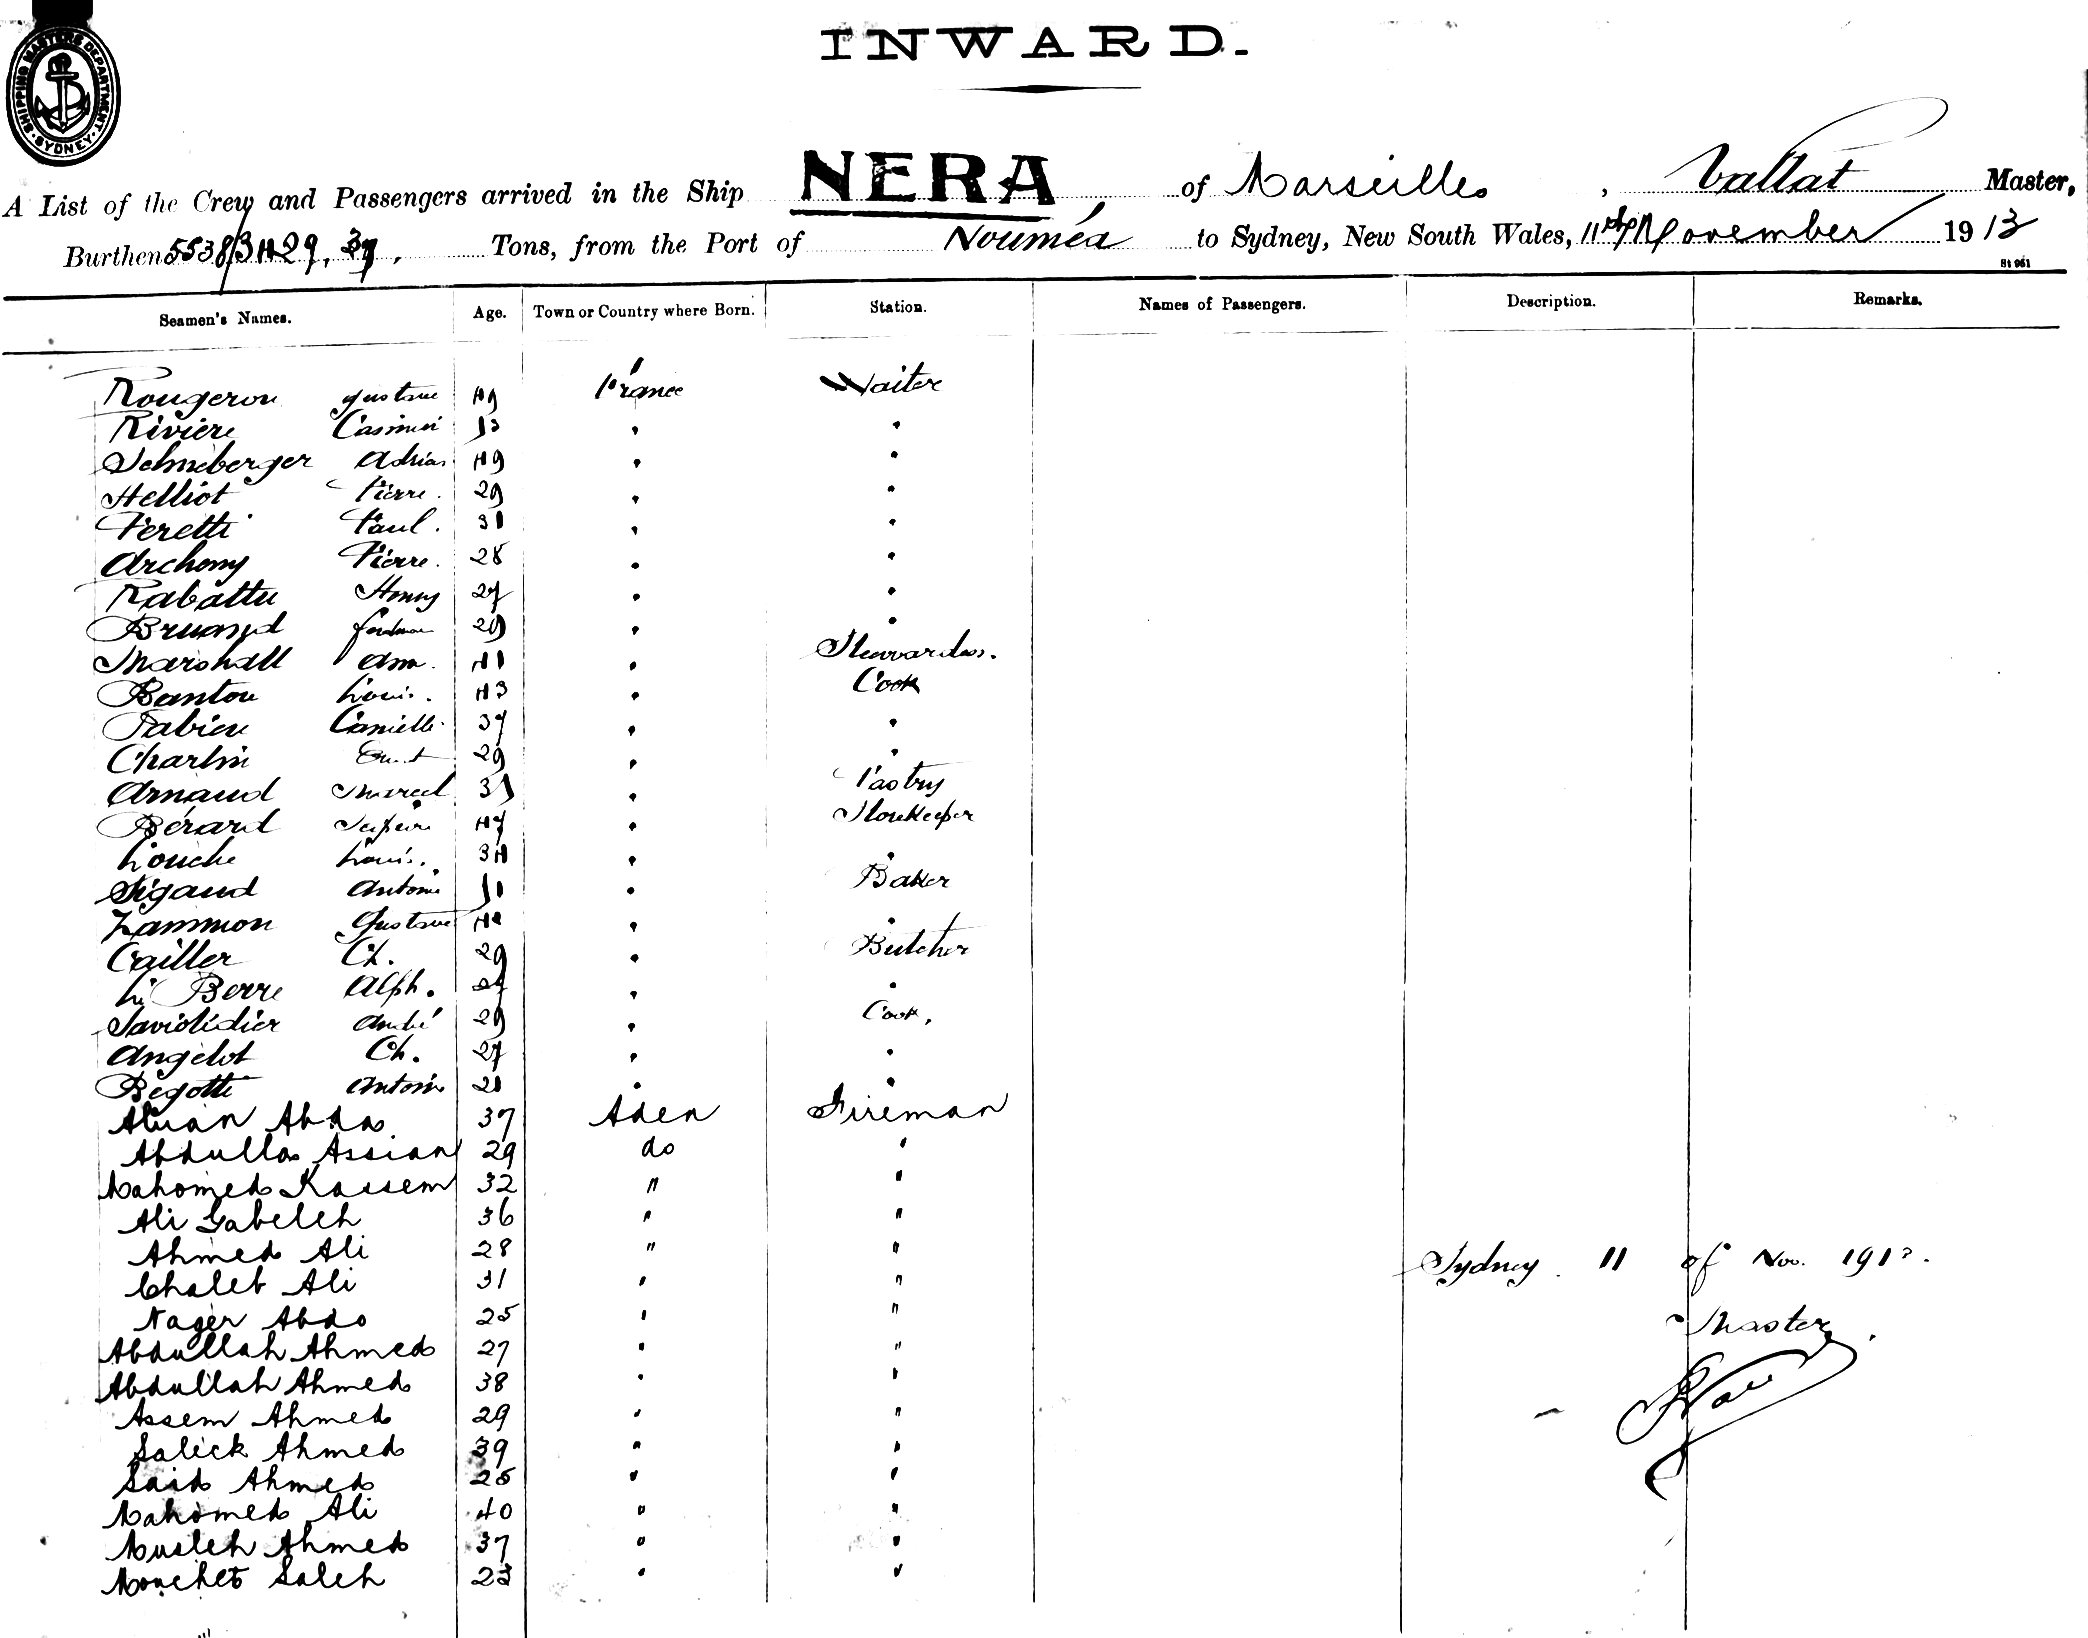 SHIPPING MASTERS DEPARTMENT. SYDNEY.
INWARD.
A List of the Crew and Passengers arrived in the Ship NERA of Marseilles, Vallat Master,
Burthen 5538/3429,37, Tons, from the Port of Nouméa to Sydney, New South Wales, 11th November 1913
St 961
Seamen's Names. Age. Town or Country where Born. Station. Names of Passengers. Description. Remarks.
Rougeron Gustave 49 France Waiter
Rivière Casimir 53 " "
Schneberger Adrian 49 " "
Helliot Pierre. 29 " "
Peretti Paul. 31 " "
Archomy Pierre. 28 " "
Rabattu Henry 27 " "
Bruand 29 " "
Marshall Ann. 41 " Stewardess.
Banton Louis. 43 " Cook
Fabien Camille 37 " "
Charlin 29 " "
Arnaud Marcel 35 " Pastry
Bérard 47 " Storekeeper
Louche Louis. 34 " "
Sigaud Antoine 51 " Baker
Zammon Gustave " "
Cailler Ch. 29 " Butcher
Le Berre Alph. " "
André 29 " Cook,
Angelot Ch. 27 " "
Begotti Antoine 21 " "
Abdo 37 Aden Fireman
Abdulla Assian 29 do "
Mahomed Kassem 32 " "
Ali Gabeleh 36 " "
Ahmed Ali 28 " "
Chaleb Ali 31 " "
Nager Abdo 25 " "
Abdullah Ahmed 27 " "
Abdullah Ahmed 38 " "
Assem Ahmed 29 " "
Salick Ahmed 39 " "
Said Ahmed 25 " "
Mahomed Ali 40 " "
Musleh Ahmed 37 " "
Mouchet Saleh 23 " "
Sydney. 11 of Nov. 1913.
Master.